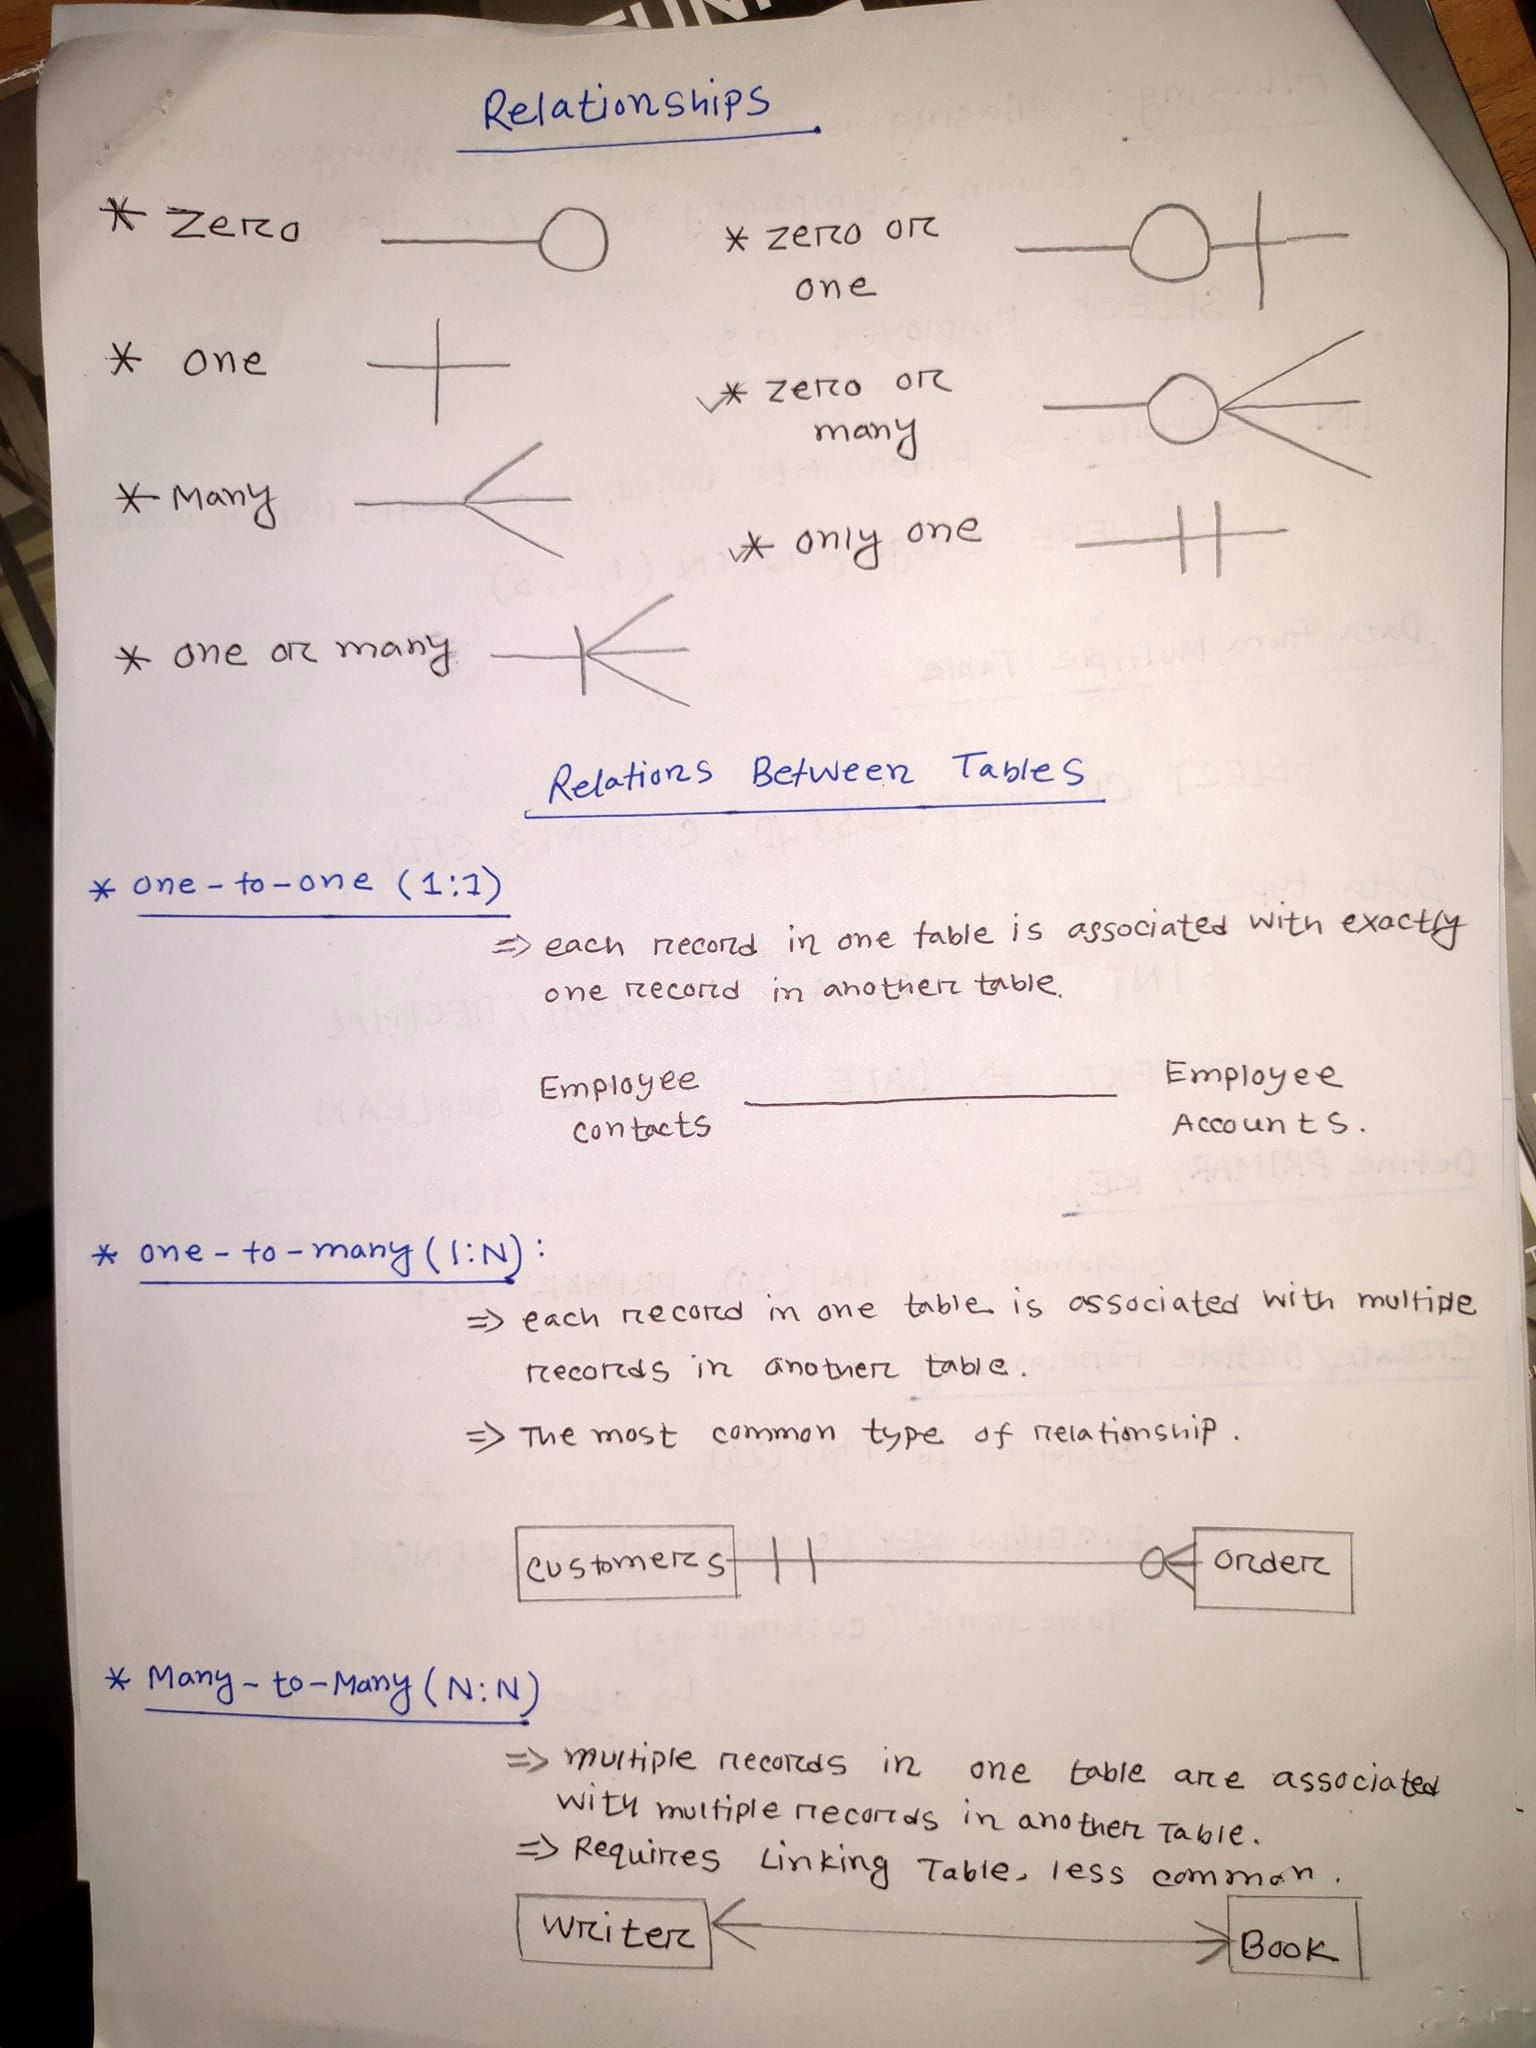 Relationships
* zero
* zero or
one
* one
* zero or
many
* Many
* only one
* one or many
Relations Between Tables
* one-to-one (1:1)
=> each record in one table is associated with exactly
one record in another table.
Employee
contacts
Employee
Accounts.
* one-to-many (1:N):
=> each record in one table is associated with multiple
records in another table.
=> The most common type of relationship.
customers
order
* Many-to-Many (N:N)
=> multiple records in one table are associated
with multiple records in another Table.
=> Requires Linking Table, less common.
writer
Book